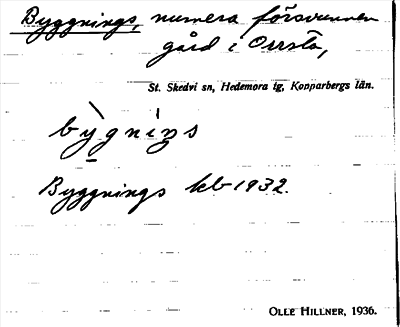 Byggnings, numera försvunnen
gård i Orrsta,
St. Skedvi sn, Hedemora tg, Kopparbergs län.
bỳgnìŋs
Byggnings kb 1932.
OLLE HILLNER, 1936.